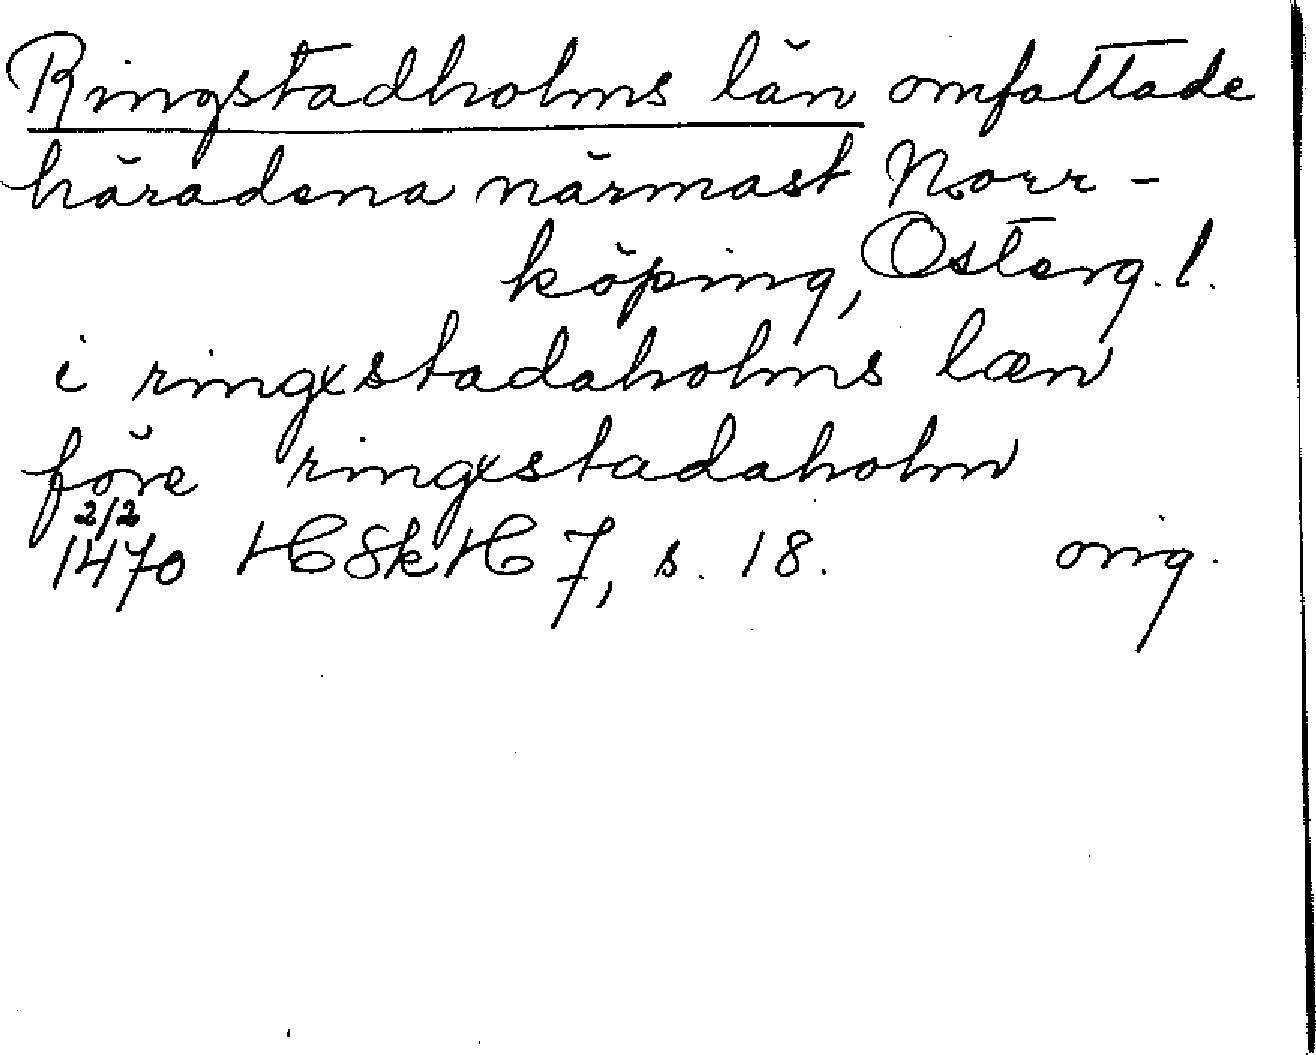 Ringstadholms län omfattade
häradena närmast Norr-
köping, Österg. l.
i ringxstadaholms læn
före ringxstadaholm
2/2
1470 HSkH 7, s. 18. orig.